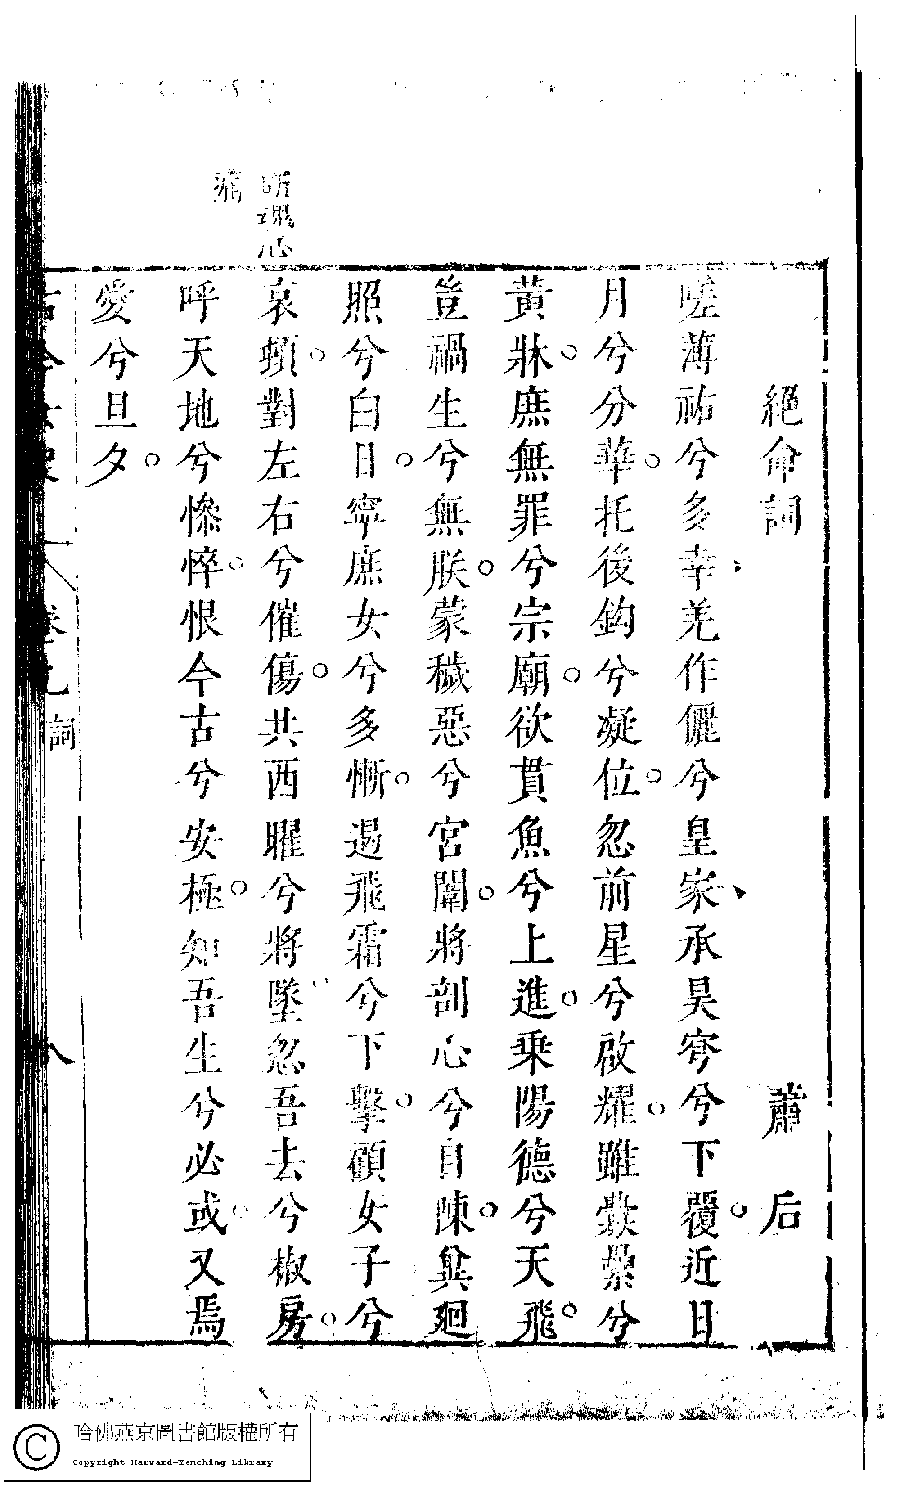 絕命詞　蕭后
嗟薄祐兮多幸、羌作儷兮皇家、承昊穹兮下覆。近日
月兮分華。托後鈎兮凝位。忽前星兮啟耀。雖釁纍兮
黃牀。庶無罪兮宗廟。欲貫魚兮上進。乘陽德兮天飛。
豈禍生兮無朕。蒙穢惡兮宮闈。將剖心兮自陳。兾廻
照兮白日。寧庶女兮多慚。遏飛霜兮下擊。顧女子兮
哀頓。對左右兮催傷。共西曜兮將墜忽吾去兮椒房。
呼天地兮慘悴。恨今古兮安極。知吾生兮必或。又焉
愛兮旦夕。
卷九 詞 八
哈佛燕京圖書館版權所有
Copyright Harvard-Yenching Library